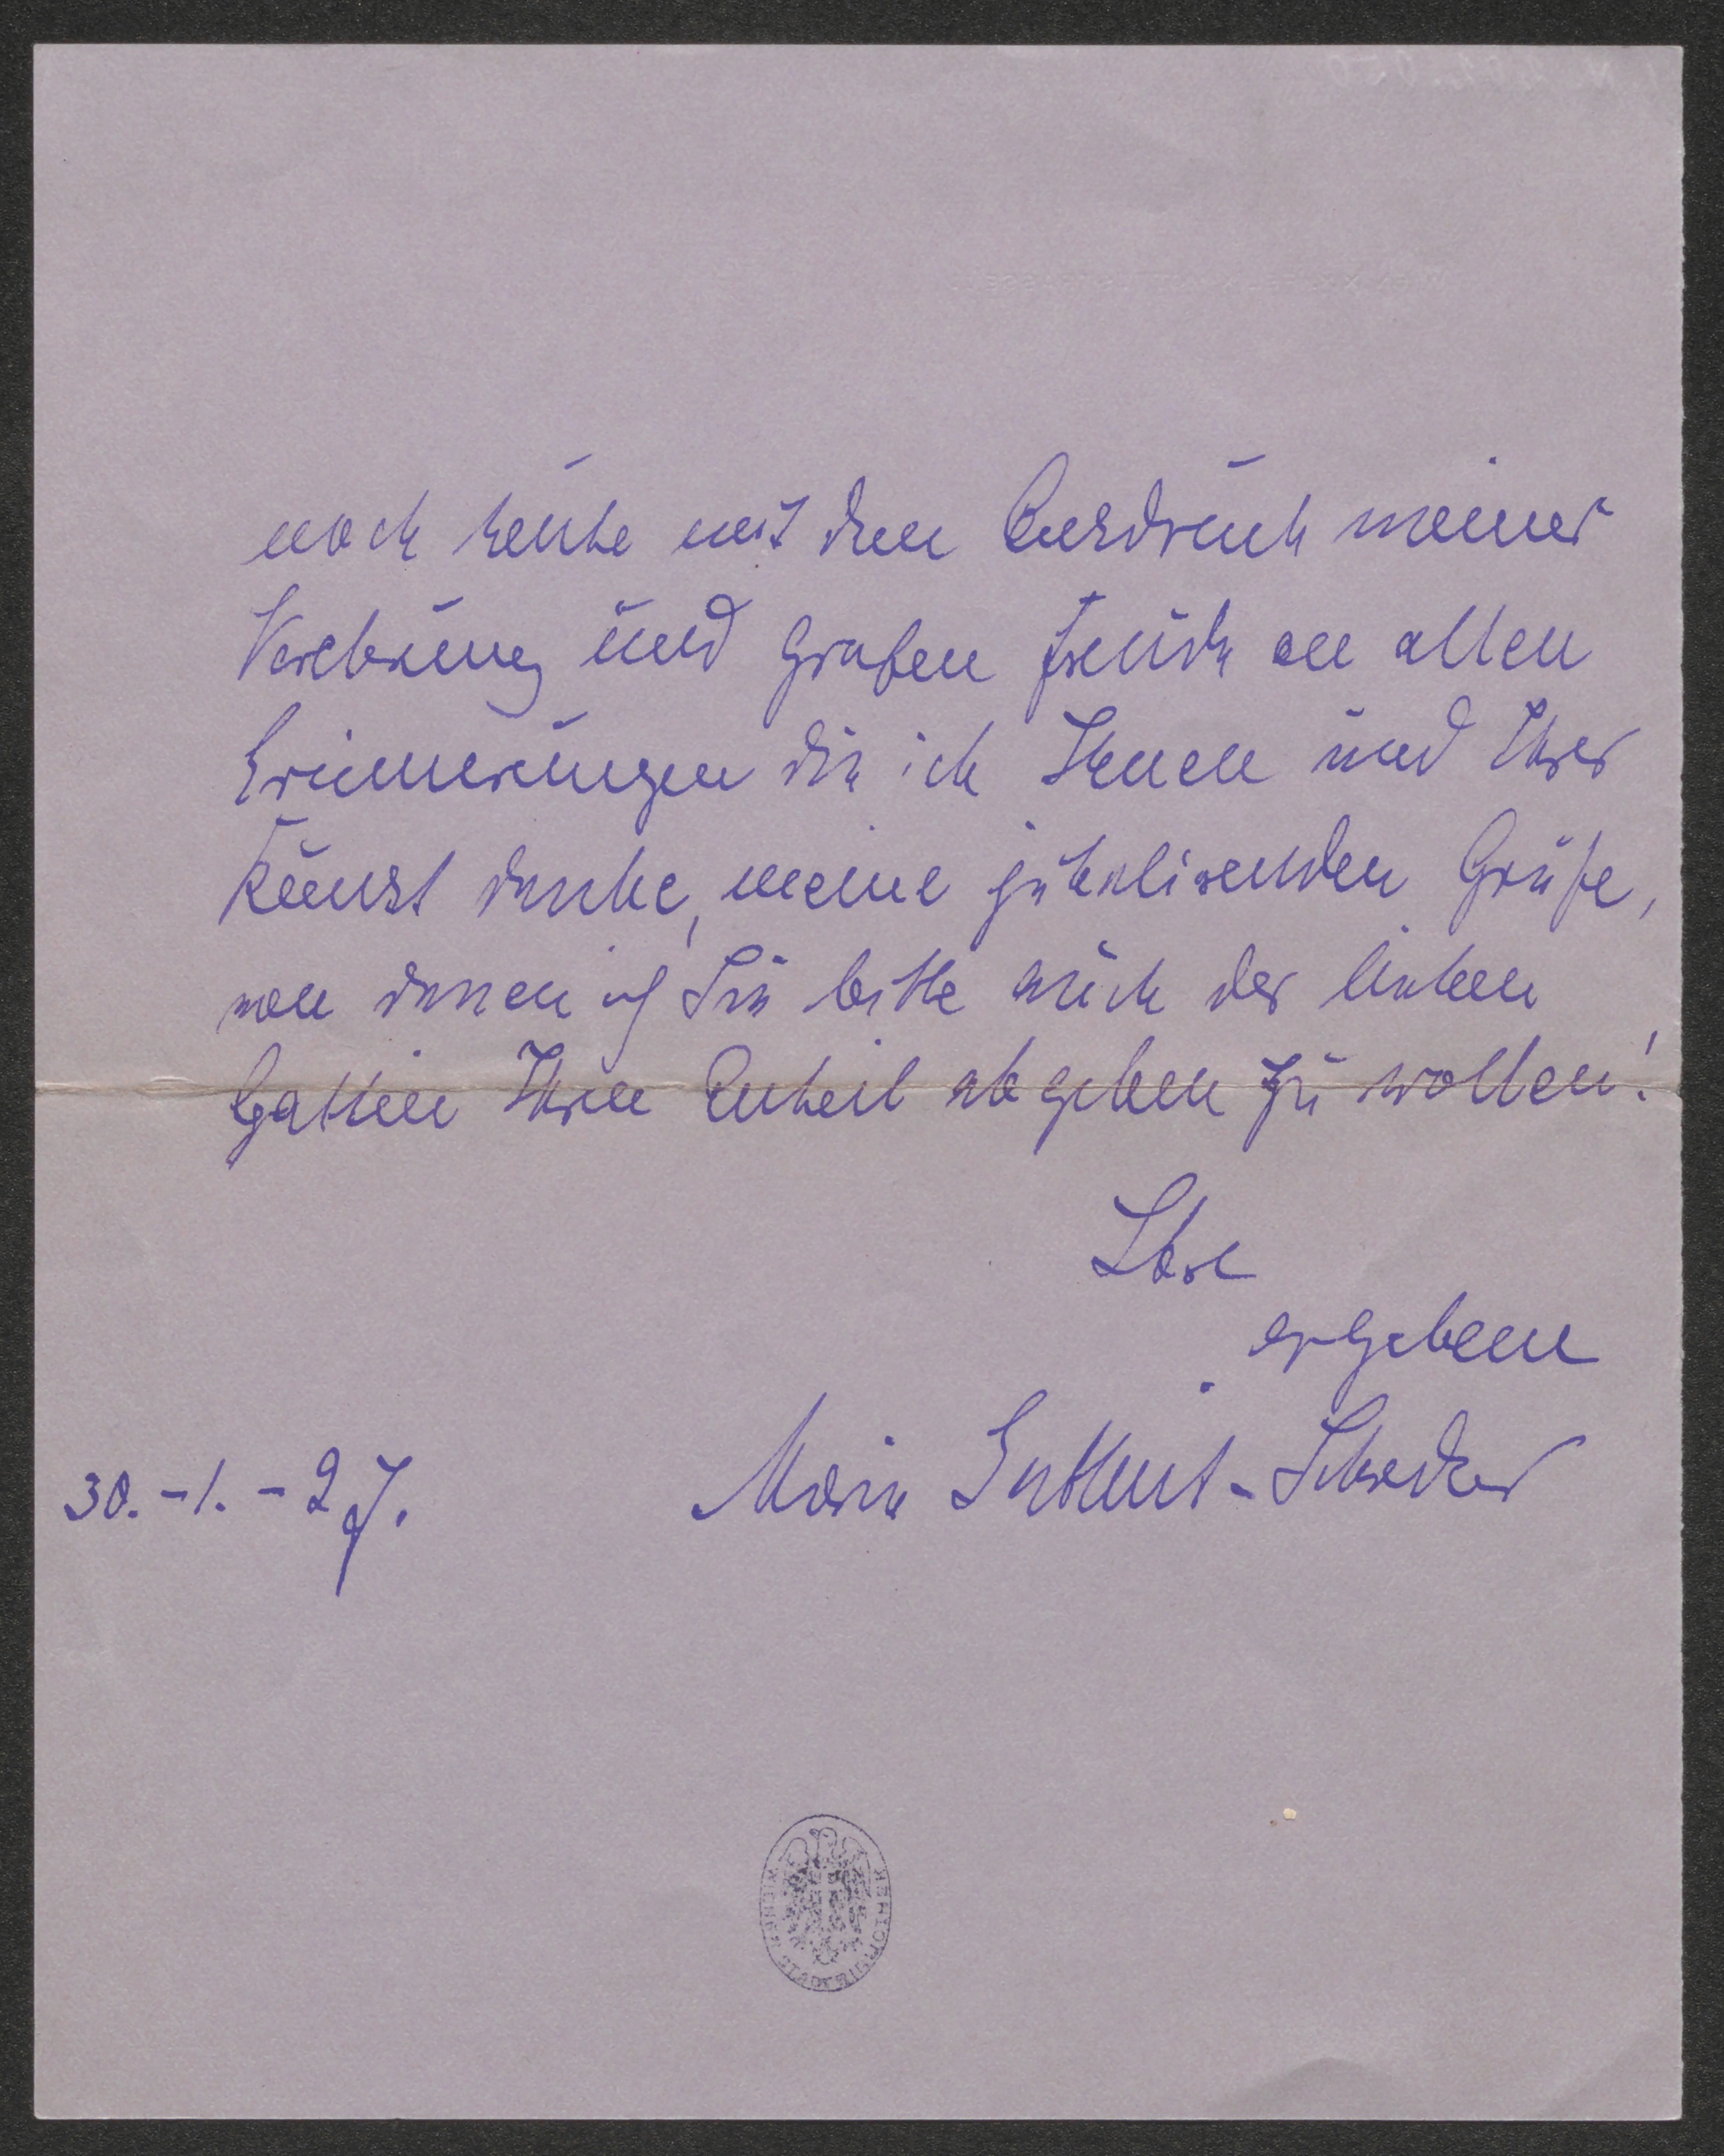 noch heute mit dem Ausdruck meiner
Verehrung und großen Freude an allen
Erinnerungen die ich Ihnen und Ihrer
Kunst danke, meine jubelierenden Grüße,
von denen ich Sie bitte auch der lieben
Gattin Ihren Anteil abgeben zu wollen!
Ihre
ergebene
30. - 1. - 27.
Marie Gutheil-Schoder
WIENER STADTBIBLIOTHEK